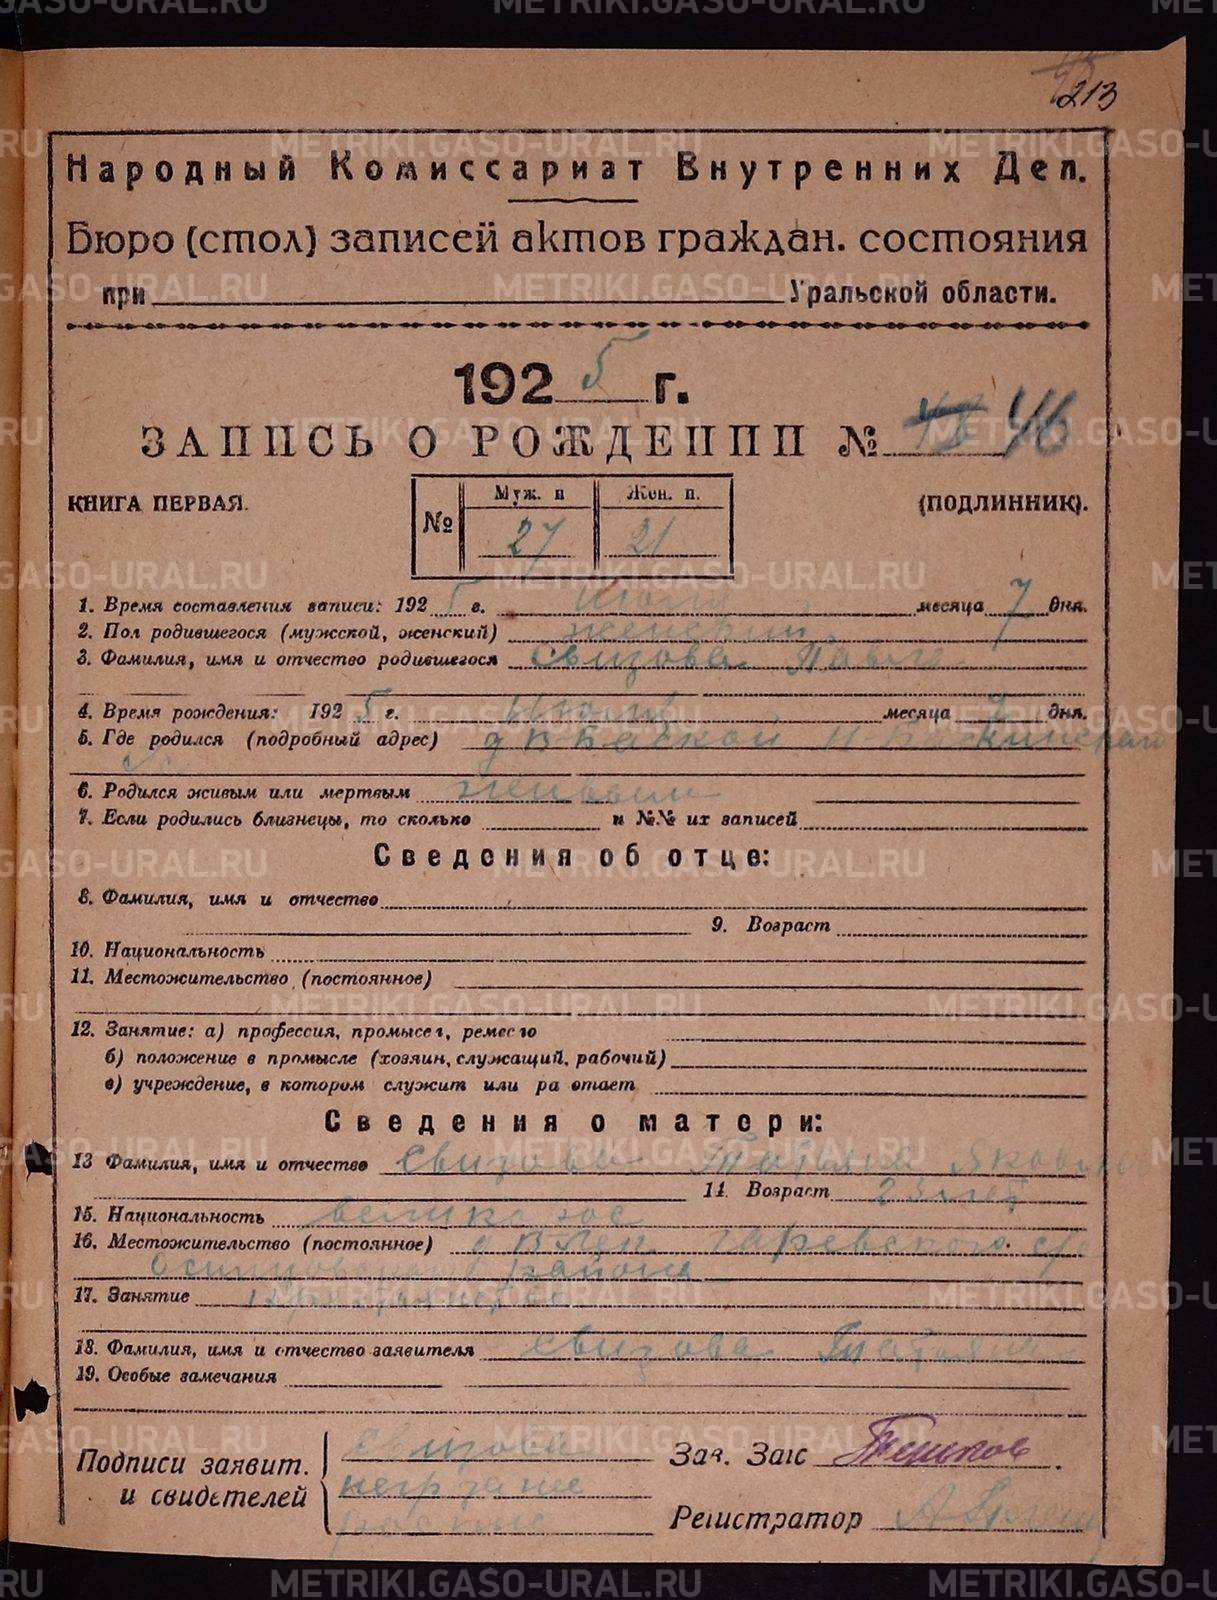 213
Народный Комиссариат Внутренних Дел.
Бюро (стол) записей актов граждан. состояния
при Уральской области.
1925 г.
ЗАПИСЬ О РОЖДЕНИИ № 48 46
КНИГА ПЕРВАЯ. (ПОДЛИННИК).
№ Муж. п Жен. п.
27 21
1. Время составления записи: 1925 г. Июля месяца 7 дня.
2. Пол родившегося (мужской, женский) женский
3. Фамилия, имя и отчество родившегося Свизова
4. Время рождения: 1925 г. Июля месяца 7 дня.
5. Где родился (подробный адрес)
6. Родился живым или мертвым
7. Если родились близнецы, то сколько и №№ их записей
Сведения об отце:
8. Фамилия, имя и отчество
9. Возраст
10. Национальность
11. Местожительство (постоянное)
12. Занятие: а) профессия, промысел, ремесло
б) положение в промысле (хозяин, служащий, рабочий)
в) учреждение, в котором служит или ра отает
Сведения о матери:
13 Фамилия, имя и отчество Свизова Татьяна
14. Возраст 23 лет
15. Национальность великорос
16. Местожительство (постоянное) Гаревского с/с
Осинцовского района
17. Занятие
18. Фамилия, имя и отчество заявителя Свизова Татьяна
19. Особые замечания
Подписи заявит. Свизова Зав. Загс
и свидетелей неграмотные
Регистратор